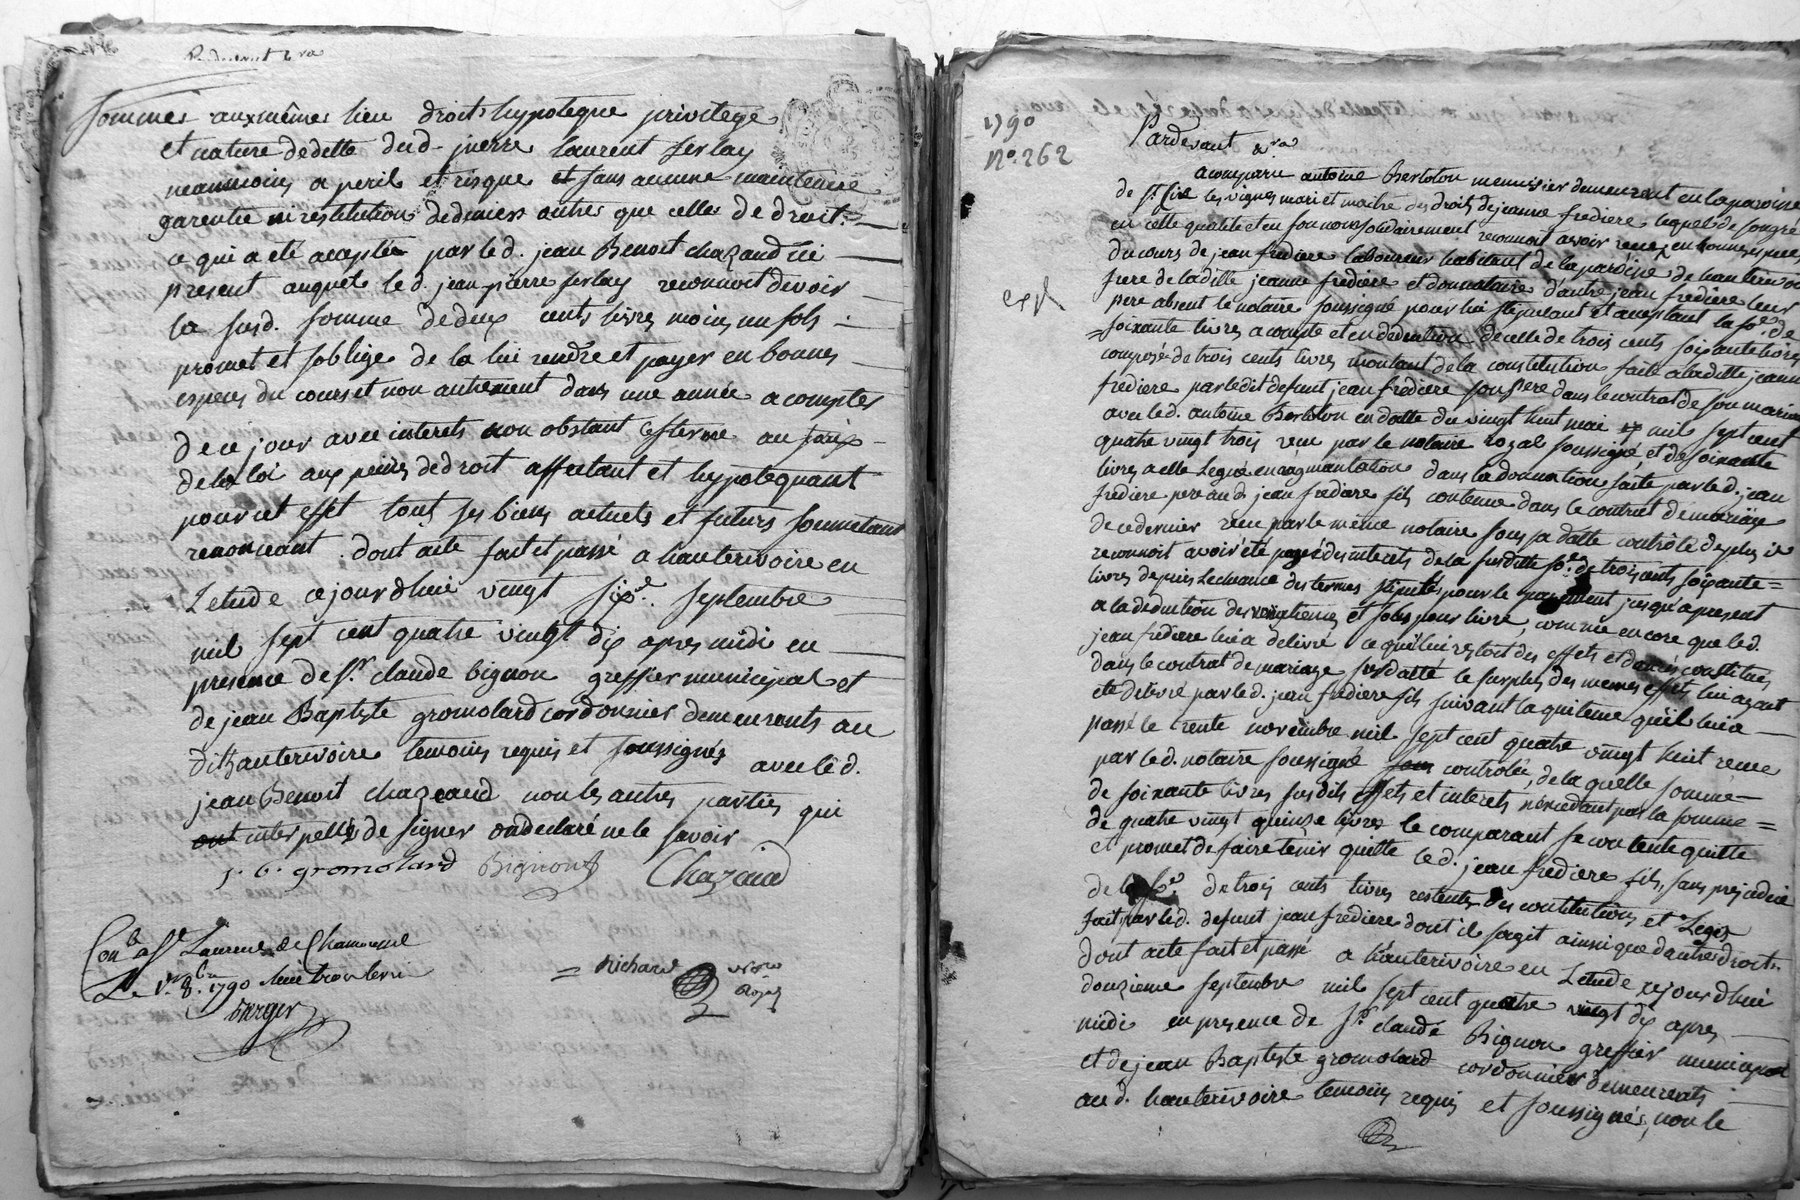 Pardevant &ra
sommes aux mêmes lieu droits hypoteque privilege
et nature de dette dud. pierre laurent ferlay
neanmoins a peril et risque et sans aucune maintenue
garentie ni restitution de deniers autres que celles de droit.
ce qui a été accepté par led. jean Benoit chazaud ici
present auquel led. jean pierre ferlay reconnoit devoir
la susd. somme de deux cents livres moins un sols
promet et s'oblige de la lui rendre et payer en bonnes
especes du cours et non autrement dans une année a compter
de ce jour avec interets non obstant le terme au taux
de la loi aux peines de droit affectant et hypotequant
pour cet effet tous ses biens actuels et futurs soumettant
renonceant. dont acte fait et passé a hauterivoire en
L'etude cejourdhui vingt six septembre
mil sept cent quatre vingt dix apres midi en
presence de sr. claude bignon greffier municipal et
de jean Baptiste gromolard cordonnier demeurants au
dit hauterivoire temoins requis et soussignés avec led.
jean Benoit chazeaud non les autres parties qui
ont interpellés de signer ont declaré ne le savoir
j. b. gromolard Bignon Chazaud
Conlé a St Laurent de Chamousset
Le 1er 8bre 1790
= Richard nore
Royal
Barger
1790
No. 262
Pardevant &ra
a comparu antoine Bertoton menuisier demeurant en la paroisse
de St. Cire les vignes mari et maitre des droits de jeanne fredière lequel de son gré
en cette qualité et en son nom solidairement reconnoit avoir recu en bonnes especes
du cours de jean frediere laboureur habitant de la paroisse de hauterivoire
expd
frere de ladite jeanne frediere et donnataire d'autre jean frediere leur
pere absent le notaire soussigné pour lui stipulant et acceptant la se. de
soixante livres a compte et en deduction de celle de trois cents soixante livres
composée de trois cents livres montant de la constitution faite a ladite jeanne
frediere par ledit defunt jean frediere son pere dans le contrat de son mariage
avec led. antoine Bertoton en datte du vingt huit mai mil sept cent
quatre vingt trois recu par le notaire royal soussigné et de soixante
livres a elle Legué en augmentation dans la donnation faite par led. jean
frediere pere aud. jean frediere fils contenue dans le contrat de mariage
de ce dernier recu par le même notaire sous sa datte controlé de plus il
reconnoit avoir été payé des interets de la susditte se. de trois cents soixante =
livres depuis L'echeance des termes stipulés pour le payement jusqu'a present
a la deduction des vingtiemes et sols pour livre, comme encore que led.
jean frediere lui a delivré ce qu'il lui restoit des effets et denrés constitués
dans le contrat de mariage susdatté le surplus des memes effets lui ayant
eté delivré par led. jean frediere fils suivant la quittance qu'il lui a
passé le trente novembre mil sept cent quatre vingt huit recue
par led. notaire soussigné controlée, de la quelle somme
de soixante livres susdits effets et interets n'excedant pas la somme =
de quatre vingt quinze livres le comparant se contente quitte
et promet de faire tenir quitte led. jean frediere fils, sans prejudice
de la se. de trois cents livres restente des constitutions et Legs
fait par led. defunt jean frediere dont il s'agit ainsi que d'autres droits
dont acte fait et passé a hauterivoire en L'etude cejourdhui
douzieme septembre mil sept cent quatre vingt dix apres
midi en presence de Sr. claude Bignon greffier municipal
et de jean Baptiste gromolard cordonnier demeurants
aud. hauterivoire temoins requis et soussignés, non le